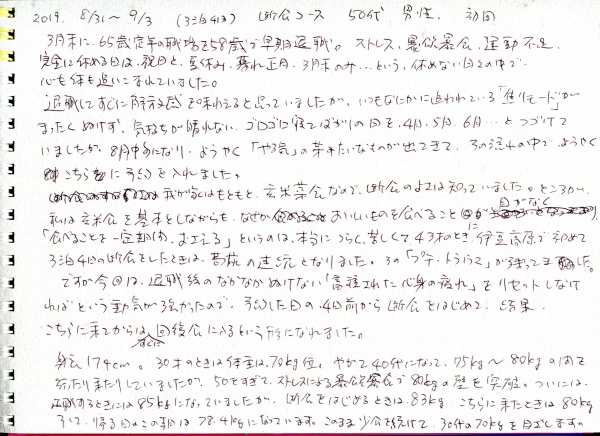 2019. 8/31〜9/3 (3泊4日) 断食コース 50代 男性. 初回
3月末に、65歳定年の職場を58歳で早期退職。ストレス、暴飲暴食、運動不足、
完全に休める日は、祝日と、夏休み、暮れ正月、3月末のみ…という、休めない日々の中で、
心も体も追いこまれていました。
退職してすぐに開放感を味わえると思っていましたが、いつもなにかに追われている「焦りモード」が
まったくぬけず、気持ちが晴れない、ゴロゴロ寝てばかりの日を、4月、5月、6月…とつづけて
いましたが、8月中旬になり、ようやく「やる気」の芽みたいなものが出てきて、その流れの中で、ようやく
こちらに予約を入れました。
我が家はもともと、玄米菜食なので、断食のよさは知っていました。ところが、
私は玄米食を基本としながらも、なぜかおいしいものを食べること
「食べることを一定期間、おさえる」というのは、本当につらく、苦しくて43才のときに伊豆高原で初めて
3泊4日の断食をしたときは、苦痛の連続となりました。その「プチ・トラウマ」が残ってました。
ですが今回は、退職後のなかなかぬけない「蓄積された心身の疲れ」をリセットしなけ
ればという動気が強かったので、予約した日の4日前から断食をはじめて、結果、
こちらに来てからは、すぐに回復食に入るという形になれました。
身長174cm。30才のときは体重は、70kg位、やがて40代になって、75kg〜80kgの間を
行ったり来たりしていましたが、50をすぎて、ストレスによる暴飲暴食で80kgの壁を突破。ついには、
退職するときには85kgになっていましたが、断食をはじめるときは、83kg こちらに来たときは80kg
そして、帰る日のこの朝は78.4kgになっています。このまま少食を続けて、30代の70kgを目ざします。